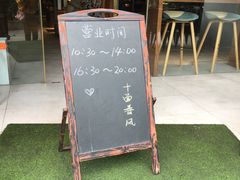 营业时间
10:30~14:00
16:30~20:00
十面春风